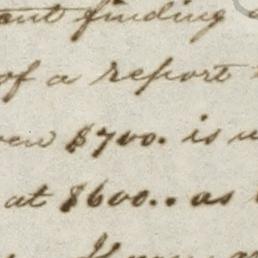 finding
of a report
$700. is
at $600.. as